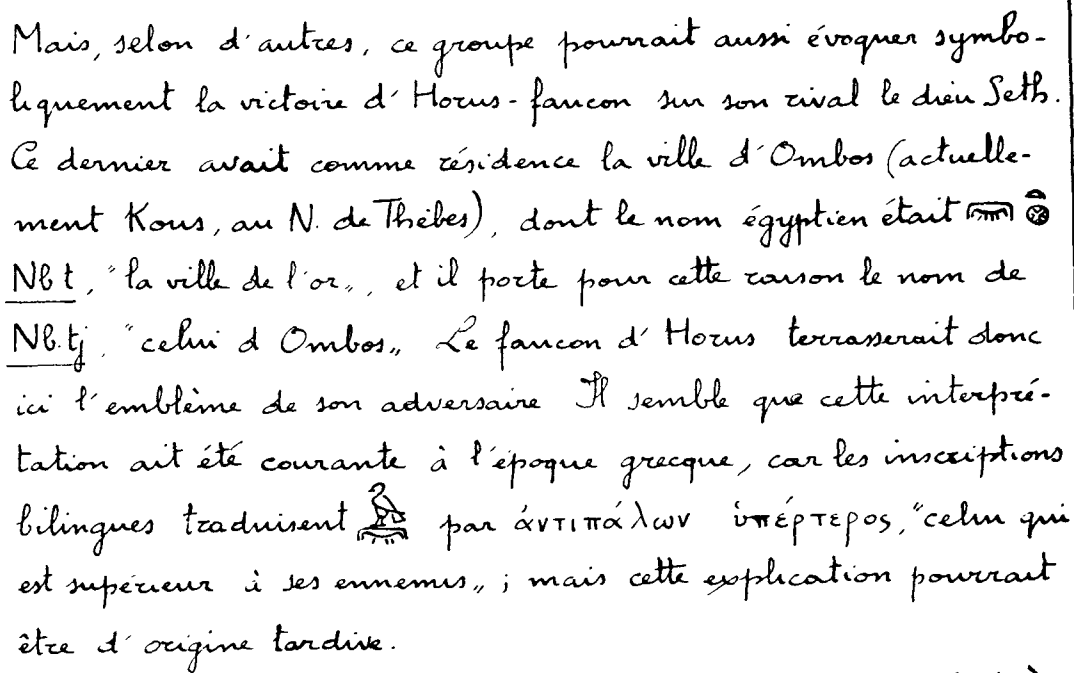 Mais, selon d'autres, ce groupe pourrait aussi évoquer symbo-
liquement la victoire d'Horus-faucon sur son rival le dieu Seth.
Ce dernier avait comme résidence la ville d'Ombos (actuelle-
ment Kous, au N. de Thèbes), dont le nom égyptien était 𓋞𓏏𓊖
Nb.t, "la ville de l'or„, et il porte pour cette raison le nom de
Nb.tj, "celui d'Ombos„ Le faucon d'Horus terrasserait donc
ici l'emblème de son adversaire Il semble que cette interpré-
tation ait été courante à l'époque grecque, car les inscriptions
bilingues traduisent 𓅉 par ἀντιπάλων ὑπέρτερος, "celui qui
est supérieur à ses ennemis„; mais cette explication pourrait
être d'origine tardive.